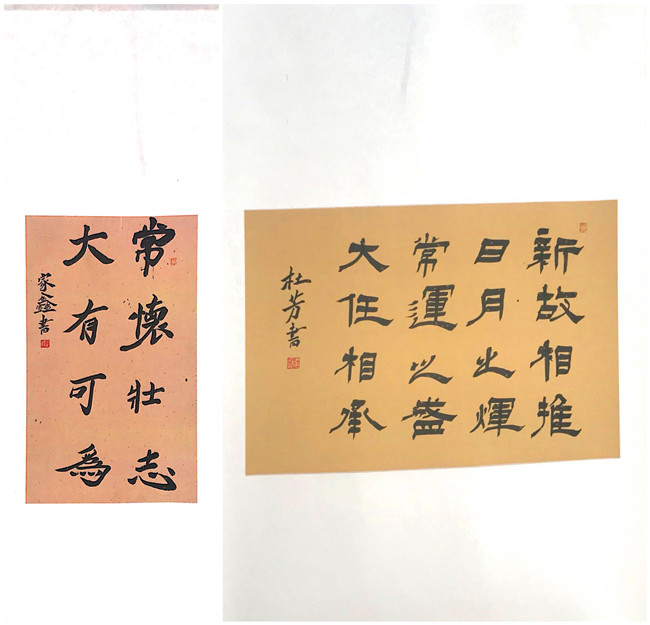 常懷壯志
大有可為
家鑫書
新故相推
日月之煇
常運之盛
大任相承
杜芳書